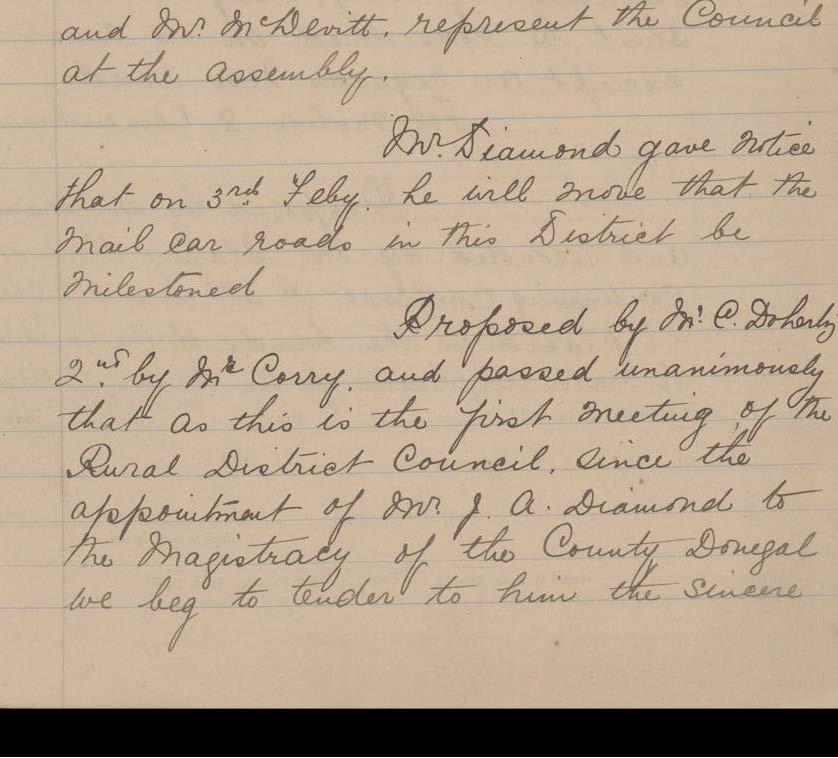 and Mr. McDevitt. represent the Council
at the assembly.
Mr. Diamond gave notice
that on 3rd Feby. he will move that the
Mail Car roads in this District be
Milestoned
Proposed by Mr. C. Doherty
2nd by Mr Corry, and passed unanimously
that as this is the first Meeting of the
Rural District Council, since the
appointment of Mr. J. A. Diamond to
the Magistracy of the County Donegal
we beg to tender to him the sincere